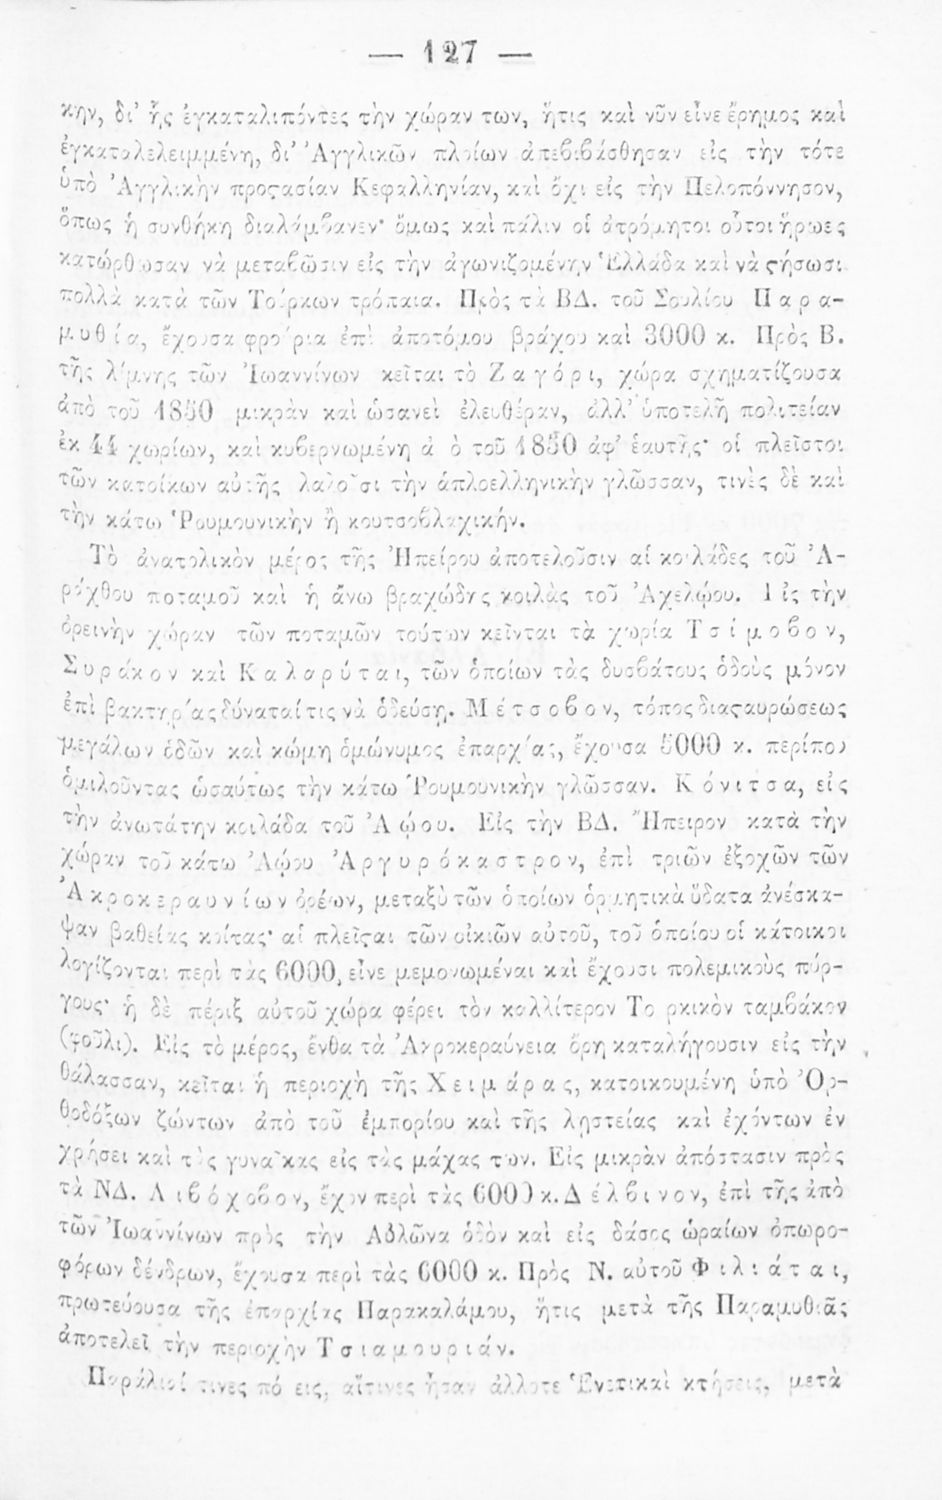 — 127 —
κην, δι’ ἧς ἐγκαταλιπόντες τὴν χώραν των, ἥτις καὶ νῦν εἶνε ἔρημος καὶ
ἐγκαταλελειμμένη, δι’ Ἀγγλικῶν πλοίων ἀπεβιβάσθησαν εἰς τὴν τότε
ὑπὸ Ἀγγλικὴν προςασίαν Κεφαλληνίαν, καὶ ὄχι εἰς τὴν Πελοπόννησον,
ὅπως ἡ συνθήκη διαλάμβανεν· ὅμως καὶ πάλιν οἱ ἀτρόμητοι οὗτοι ἥρωες
κατώρθωσαν νὰ μεταβῶσιν εἰς τὴν ἀγωνιζομένην Ἑλλάδα καὶ νὰ ςήσωσι
πολλὰ κατὰ τῶν Τούρκων τρόπαια. Πρὸς τὰ ΒΔ. τοῦ Σουλίου Παρα-
μυθία, ἔχουσα φρούρια ἐπὶ ἀποτόμου βράχου καὶ 3000 κ. Πρὸς Β.
τῆς λίμνης τῶν Ἰωαννίνων κεῖται τὸ Ζαγόρι, χώρα σχηματίζουσα
ἀπὸ τοῦ 1850 μικρὰν καὶ ὡσανεὶ ἐλευθέραν, ἀλλ’ ὑποτελῆ πολιτείαν
ἐκ 44 χωρίων, καὶ κυβερνωμένη ἀ ὸ τοῦ 1850 ἀφ’ ἑαυτῆς· οἱ πλεῖστοι
τῶν κατοίκων αὐτῆς λαλοῦσι τὴν ἁπλοελληνικὴν γλῶσσαν, τινὲς δὲ καὶ
τὴν κάτω Ῥουμουνικὴν ἢ κουτσοβλαχικήν.
Τὸ ἀνατολικὸν μέρος τῆς Ἠπείρου ἀποτελοῦσιν αἱ κοιλάδες τοῦ Ἀ-
ράχθου ποταμοῦ καὶ ἡ ἄνω βραχώδης κοιλὰς τοῦ Ἀχελῴου. Εἰς τὴν
ὀρεινὴν χώραν τῶν ποταμῶν τούτων κεῖνται τὰ χωρία Τσίμοβον,
Συράκον καὶ Καλαρύται, τῶν ὁποίων τὰς δυσβάτους ὁδοὺς μόνον
ἐπὶ βακτηρίας δύναταί τις νὰ ὁδεύσῃ. Μέτσοβον, τόπος διαςαυρώσεως
μεγάλων ὁδῶν καὶ κώμη ὁμώνυμος ἐπαρχίας, ἔχουσα 5000 κ. περίπου
ὁμιλοῦντας ὡσαύτως τὴν κάτω Ῥουμουνικὴν γλῶσσαν. Κόνιτσα, εἰς
τὴν ἀνωτάτην κοιλάδα τοῦ Ἀῴου. Εἰς τὴν ΒΔ. Ἤπειρον κατὰ τὴν
χώραν τοῦ κάτω Ἀῴου Ἀργυρόκαστρον, ἐπὶ τριῶν ἐξοχῶν τῶν
Ἀκροκεραυνίων ὀρέων, μεταξὺ τῶν ὁποίων ὁρμητικὰ ὕδατα ἀνέσκα-
ψαν βαθείας κοίτας· αἱ πλεῖςαι τῶν οἰκιῶν αὐτοῦ, τοῦ ὁποίου οἱ κάτοικοι
λογίζονται περὶ τὰς 6000, εἶνε μεμονωμέναι καὶ ἔχουσι πολεμικοὺς πύρ-
γους· ἡ δὲ πέριξ αὐτοῦ χώρα φέρει τὸν καλλίτερον Το ρκικὸν ταμβάκον
(φοῦλι). Εἰς τὸ μέρος, ἔνθα τὰ Ἀκροκεραύνεια ὄρη καταλήγουσιν εἰς τὴν
θάλασσαν, κεῖται ἡ περιοχὴ τῆς Χειμάρας, κατοικουμένη ὑπὸ Ὀρ-
θοδόξων ζώντων ἀπὸ τοῦ ἐμπορίου καὶ τῆς λῃστείας καὶ ἐχόντων ἐν
χρήσει καὶ τὰς γυναῖκας εἰς τὰς μάχας των. Εἰς μικρὰν ἀπόστασιν πρὸς
τὰ ΝΔ. Λιβόχοβον, ἔχον περὶ τὰς 6000 κ. Δέλβινον, ἐπὶ τῆς ἀπὸ
τῶν Ἰωαννίνων πρὸς τὴν Αὐλῶνα ὁδὸν καὶ εἰς δάσος ὡραίων ὀπωρο-
φόρων δένδρων, ἔχουσα περὶ τὰς 6000 κ. Πρὸς Ν. αὐτοῦ Φιλιάται,
πρωτεύουσα τῆς ἐπαρχίας Παρακαλάμου, ἥτις μετὰ τῆς Παραμυθιᾶς
ἀποτελεῖ τὴν περιοχὴν Τσιαμουριάν.
Παράλιοί τινες πό εις, αἵτινες ἦσαν ἄλλοτε Ἑνετικαὶ κτήσεις, μετὰ